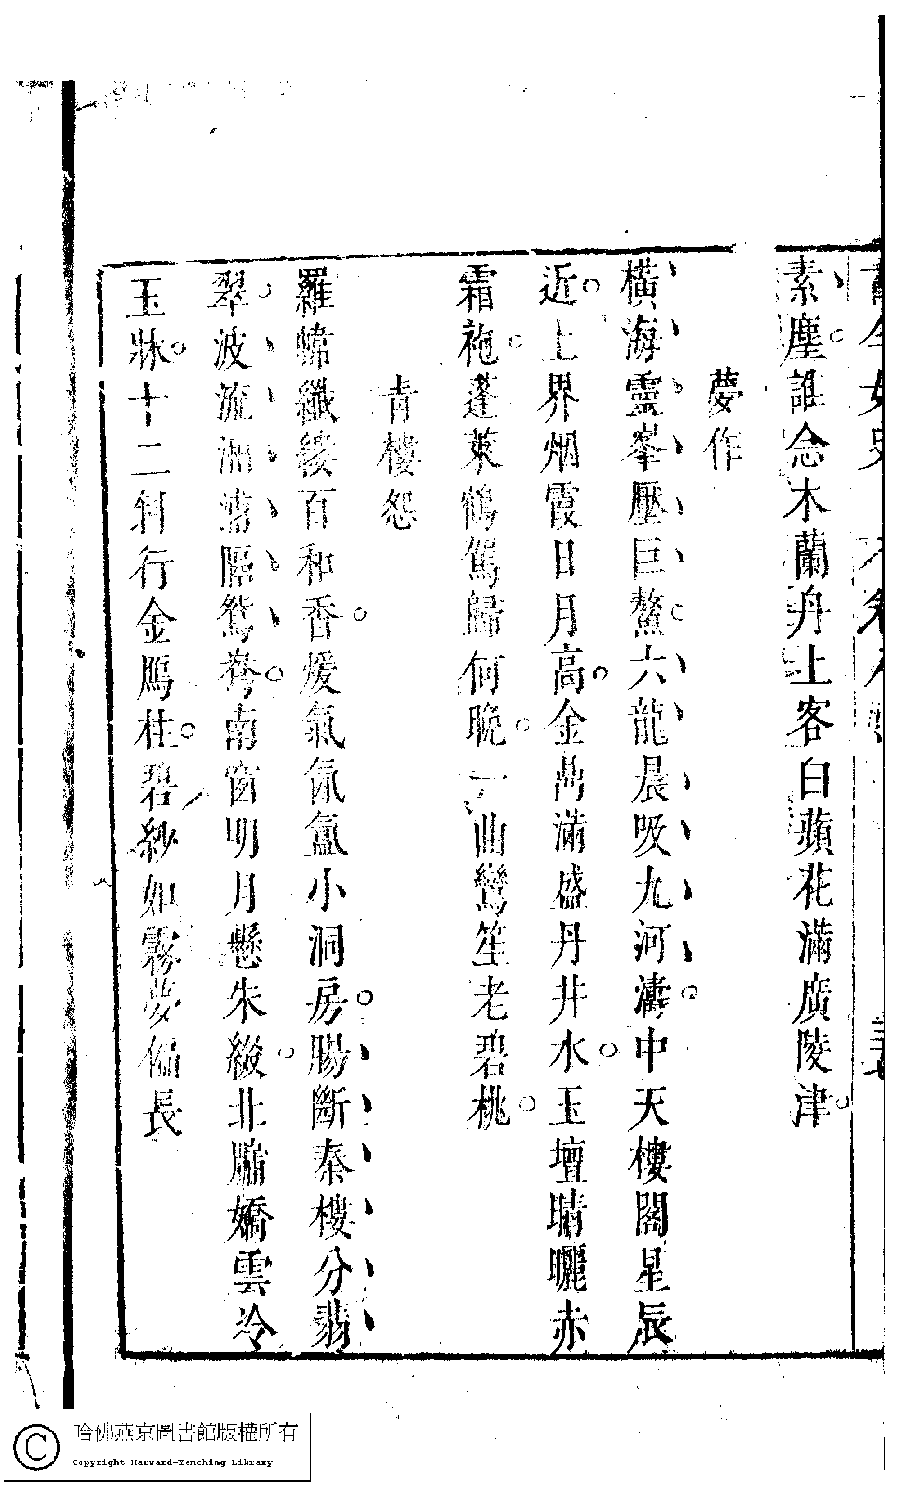 素塵誰念木蘭舟上客白蘋花滿廣陵津
夢作
橫海靈峯壓巨鰲六龍晨吸九河濤中天樓閣星辰
近上界烟霞日月高金鼎滿盛丹井水玉壇晴曬赤
霜袍蓬萊鶴駕歸何晚一曲鸞笙老碧桃
青樓怨
羅幃纖縷百和香煖氣氤氳小洞房腸斷秦樓分翡
翠波流湘浦隔鴛鴦南窗明月懸朱綴北牖嬌雲冷
玉牀十二斜行金鴈柱碧紗如霧夢偏長
哈佛燕京圖書館版權所有
Copyright Harvard-Yenching Library